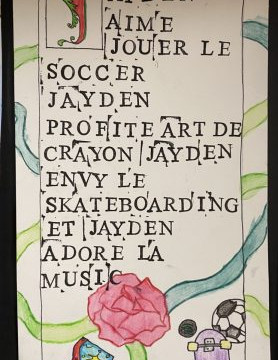 AIME
JOUER LE
SOCCER
JAYDEN
PROFITE ART DE
CRAYON JAYDEN
ENVY LE
SKATEBOARDING
ET JAYDEN
ADORE LA
MUSIC